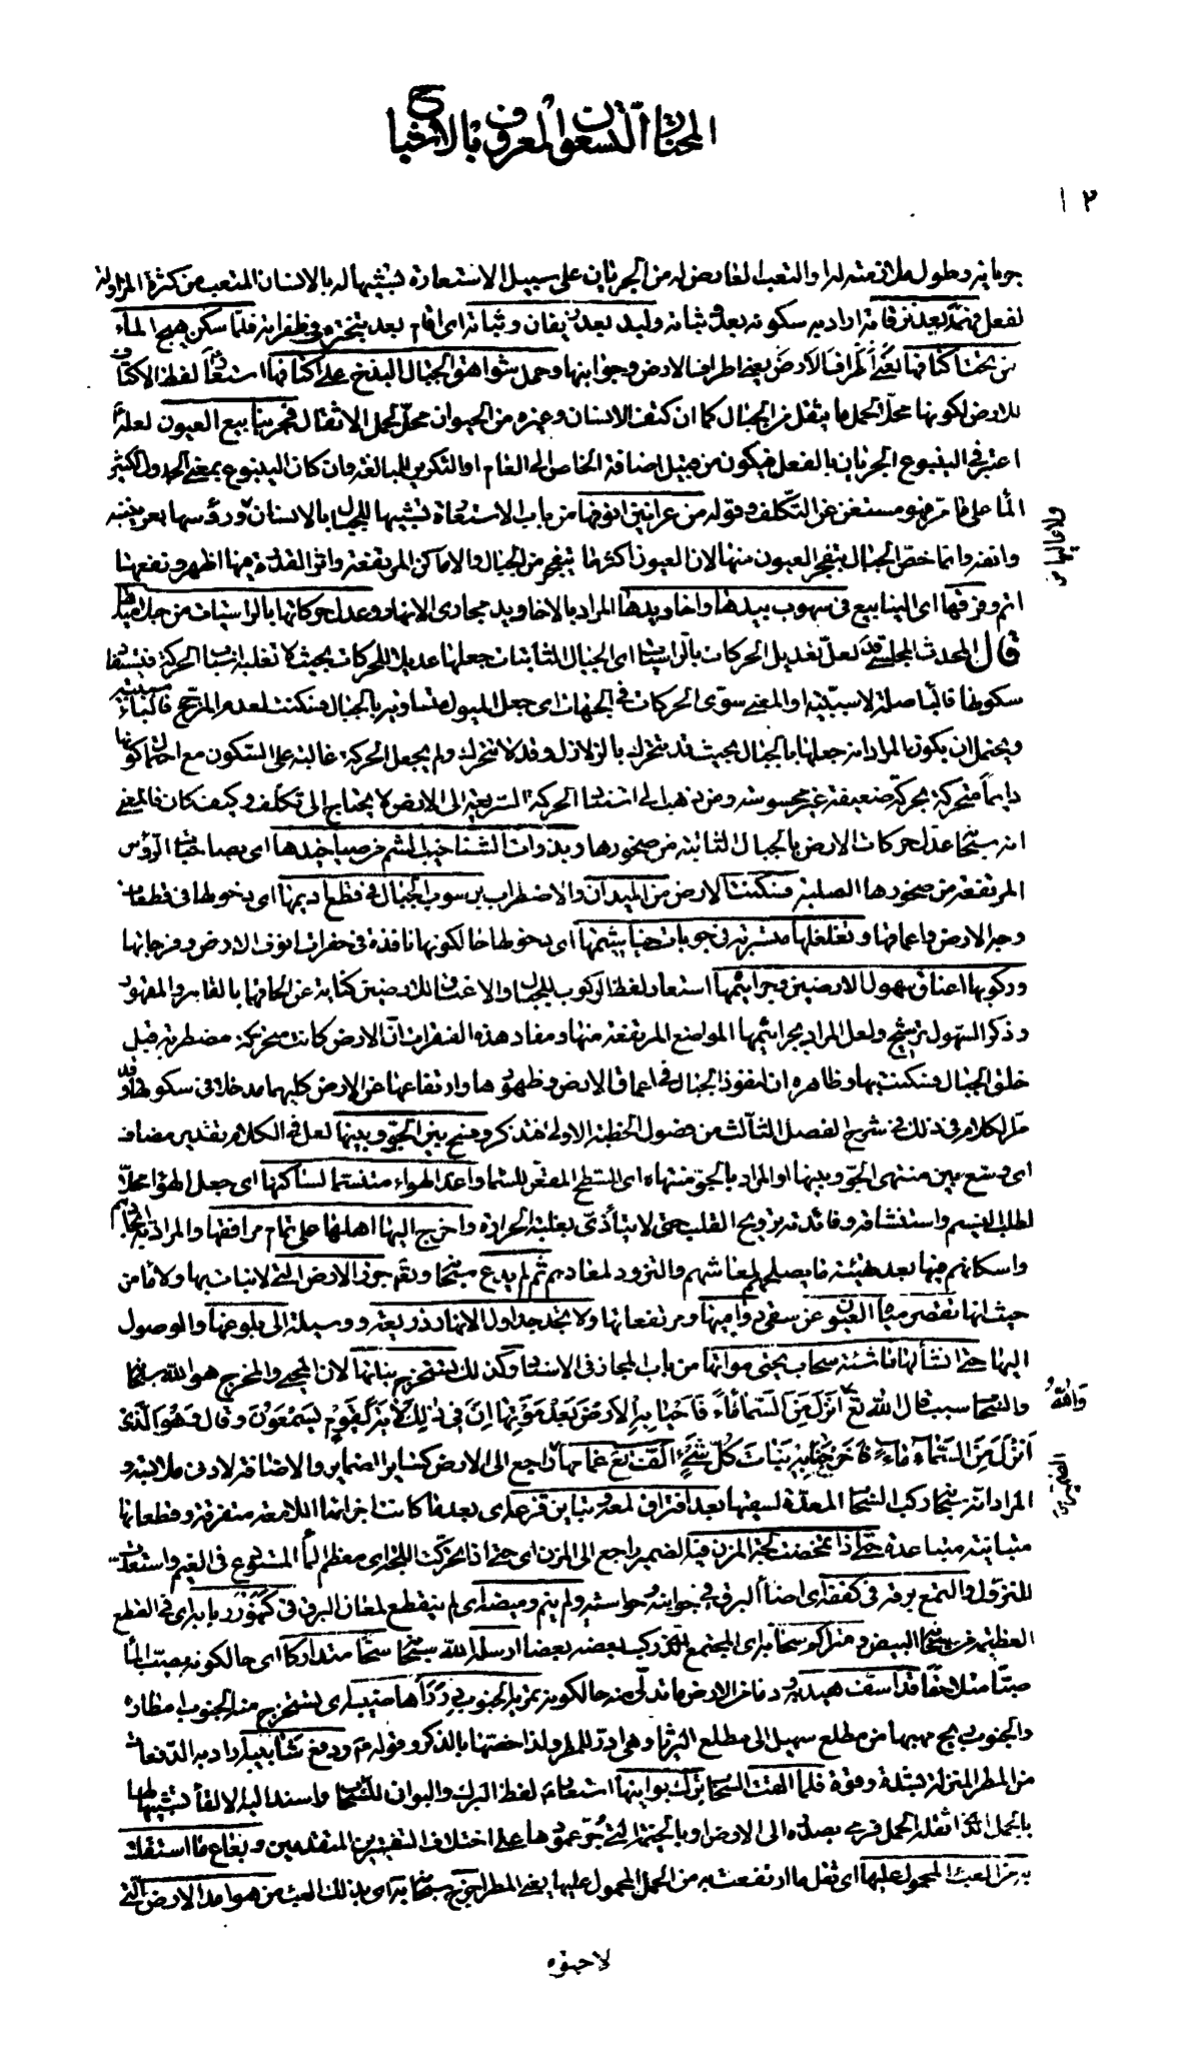 المختار التسعون المعروف بالاشباح
١٢
جريانه وطول ملازمته له او التعب العارض له من الجريان على سبيل الاستعارة تشبيها له بالانسان المتعب من كثرة المزاولة
لفعل فهمد بعد نزقاته اراد به سكونه بعد وثباته ولبد بعد زيفان وثباته اى اقام بعد تبختره فى طفراته فلما سكن هيج الماء
من تحت اكنافها يعنى اطراف الارض يعنى اطراف الارض وجوانبها وحمل شواهق الجبال البذخ على اكتافها استعار لفظ الاكتاف
للارض لكونها محلا لحمل ما يثقل من الجبال كما ان كتف الانسان وغيره من الحيوان محل لحمل الاثقال فجر ينابيع العيون لعله
اعتبر فى الينبوع الجريان بالفعل فيكون من قبيل اضافة الخاص الى العام او التكرير للمبالغة وان كان الينبوع بمعنى الجدول الكثير
الماء على ما مر فهو مستغن عن التكلف وقوله من عرانين انوفها من باب الاستعارة تشبيها للجبال بالانسان ورؤسها بعرنينه
وانفه وانما خص الجبال بتفجر العيون منها لان العيون اكثرها يتفجر من الجبال والاماكن المرتفعة واثر القدرة فيها اظهر ونفعها
اتم وفرقها اى الينابيع فى سهوب بيدها واخاديدها المراد بالاخاديد مجارى الانهار وعدل حركاتها بالراسيات من جلاميدها
قال المحدث المجلسى قد لعل تعديل الحركات بالراسيات اى الجبال الثابتات جعلها عديلا للحركات بحيث لا تغلبه اسباب الحركة فيستفاد
سكونها فالباء صلة لا سببية او المعنى سوى الحركات فى الجهات اى جعل الميول متساوية بالجبال فسكنت لعدم المرجح فالباء سببية
ويحتمل ان يكون المراد انه جعلها بالجبال بحيث قد تتحرك بالزلازل وقد لا تتحرك ولم يجعل الحركة غالبة على السكون مع احتمال كونها
دايما متحركة بحركة ضعيفة غير محسوسة ومن ذهب الى استناد الحركة السريعة الى الارض لا يحتاج الى تكلف وكيف كان فالمعنى
انه سبحانه عدل حركات الارض بالجبال الثابتة من صخورها وبذوات الشناخيب الشم من صياخيدها اى بصاحبات الرؤس
المرتفعة من صخورها الصلبة فسكنت الارض من الميدان والاضطراب برسوب الجبال فى قطع اديمها اى دخولها فى قطعات
وجه الارض واعماقها وتغلغلها متسربة فى جوبات خياشيمها اى دخولها حالكونها نافذة فى حفرات انوف الارض وفرجاتها
وركوبها اعناق سهول الارضين وجراثيمها استعار لفظ الركوب للجبال والاعناق للارضين كناية عن الحاقها بالقاهر والمقهور
وذكر السهول ترشيح ولعل المراد بجراثيمها المواضع المرتفعة منها ومفاد هذه الفقرات ان الارض كانت متحركة مضطربة قبل
خلق الجبال فسكنت بها وظاهره ان لنفوذ الجبال فى اعماق الارض وظهورها وارتفاعها عن الارض كليهما مدخلا فى سكونها وقد
مر الكلام فى ذلك فى شرح الفصل الثالث من فصول الخطبة الاولى فتذكر وفسح بين الجو وبينها لعل فى الكلام تقدير مضاف
اى وسع بين منتهى الجو وبينها او المراد بالجو منتهاه اى السطح المقعر للسماء واعد الهواء متنسما لساكنها اى جعل الهواء محلا
لطلب النسيم واستنشاقه وفائدته ترويح القلب حتى لا يتأذى بغلبة الحرارة واخرج اليها اهلها على تمام مرافقها والمراد به ايجادهم
واسكانهم فيها بعد تهيئة ما يصلحهم لمعاشهم والتزود لمعادهم ثم لم يدع سبحانه وتعالى جرز الارض التى لا نبات بها ولا ماء من
حيث انها تقصر مياه العيون عن سقى روابيها ومرتفعاتها ولا تجد جداول الانهار ذريعة ووسيلة الى بلوغها والوصول
اليها حتى انشأ لها ناشئة سحاب يحيى مواتها من باب المجاز فى الاسناد وكذلك تستخرج نباتها لان المحيى والمخرج هو الله سبحانه
والسحاب سبب قال الله تع وَاللّٰهُ اَنْزَلَ مِنَ السَّماءِ ماءً فَاَحْيا بِهِ الْاَرْضَ بَعْدَ مَوْتِها اِنَّ فى ذلِكَ لَآيَةً لِقَوْمٍ يَسْمَعُونَ وقال وَهُوَ الَّذى
اَنْزَلَ مِنَ السَّماءِ ماءً فَاَخْرَجْنا بِهِ نَباتَ كُلِّ شَىْءٍ الف غمامها الضمير راجع الى الارض كساير الضماير والاضافة لادنى ملابسة و
المراد انه سبحانه ركب السحاب المعدة لسقيها بعد افتراق لمعه وتباين قزعه اى بعد ما كانت اجزائها اللامعة متفرقة وقطعاتها
متباينة متباعدة حتى اذا تمخضت لجة المزن فيه الضمير راجع الى المزن اى حتى اذا تحركت اللجة اى معظم الماء المستودع فى الغيم واستعدت
للنزول والتمع برقه فى كففه اى اضاء البرق فى جوانبه وحواشيه ولم ينم وميضه اى لم ينقطع لمعان البرق فى كنهور ربابه اى فى القطع
العظيمة من سحابه البيض ومتراكم سحابه اى المجتمع الذى ركب بعضه بعضا ارسله الله سبحانه سحا متداركا اى حالكونه يصب الماء
صبا متلاحقا قد اسف هيدبه ودنا من الارض ما تدلى منه حالكونه تمريه الجنوب درر اهاضيبه اى تستخرج منه الجنوب امطاره
والجنوب ريح مهبها من مطلع سهيل الى مطلع الثريا وهى ادر للمطر ولذا خصها بالذكر وقوله ودفع شآبيبه اراد به الدفعات
من المطر المنزلة بشدة وقوة فلما القت السحاب برك بوانيها استعار لفظ البرك والبوانى للسحاب واسند اليه الالقاء تشبيها لها
بالجمل الذى اثقله الحمل فرمى بصدره الى الارض او بالخيمة التى جر عمودها على اختلاف التفسيرين المتقدمين وبعاع ما استقلت
به من العبء المحمول عليها اى ثقل ما ارتفعت به من الحمل المحمول عليها يعنى المطر اخرج سبحانه به اى بذلك العبء من هوامد الارض التى
لا حيوة